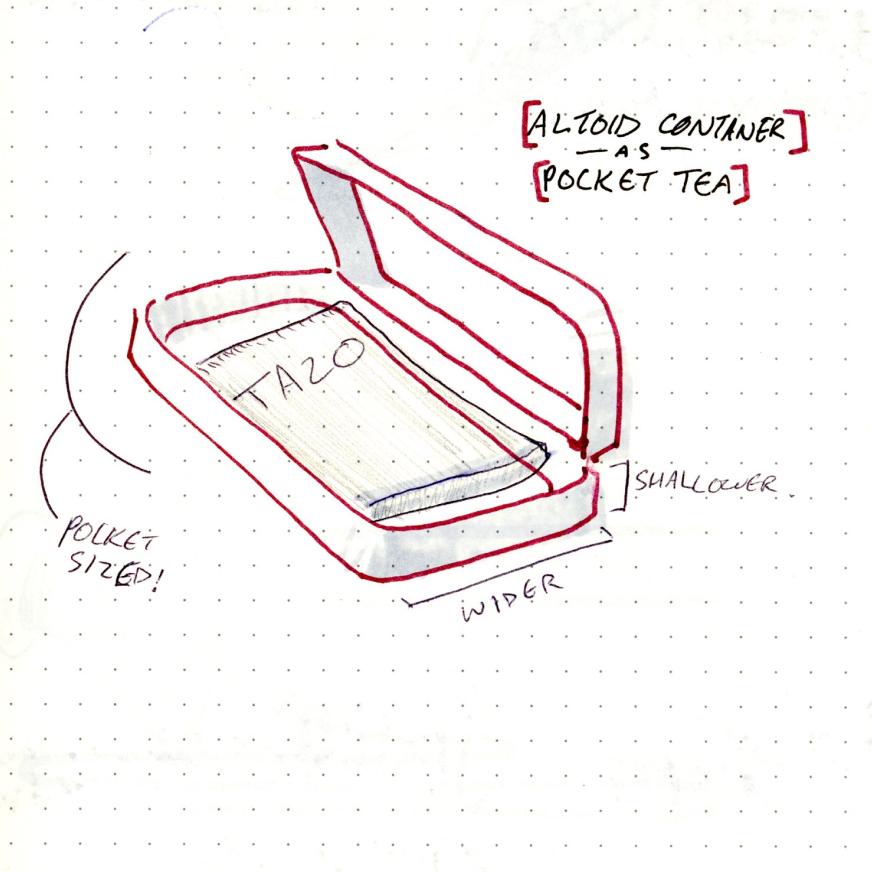 [ALTOID CONTANER]
— AS —
[POCKET TEA]
TAZO
SHALLOWER
POCKET
SIZED!
WIDER